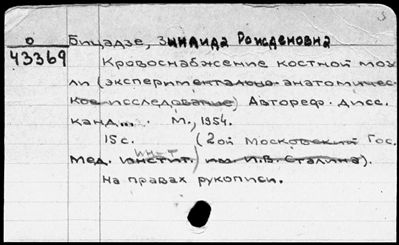 о
43369
Бицадзе, Зинаида Рожденовна
Кровоснабжение костной моз-
ли (экспериментально-анатомичес-
кое исследование) Автореф. дисс.
канд... . М., 1954.
15 с. (2ой Московский Гос.
Мед. инстит. инст им. И.В. Сталина).
На правах рукописи.